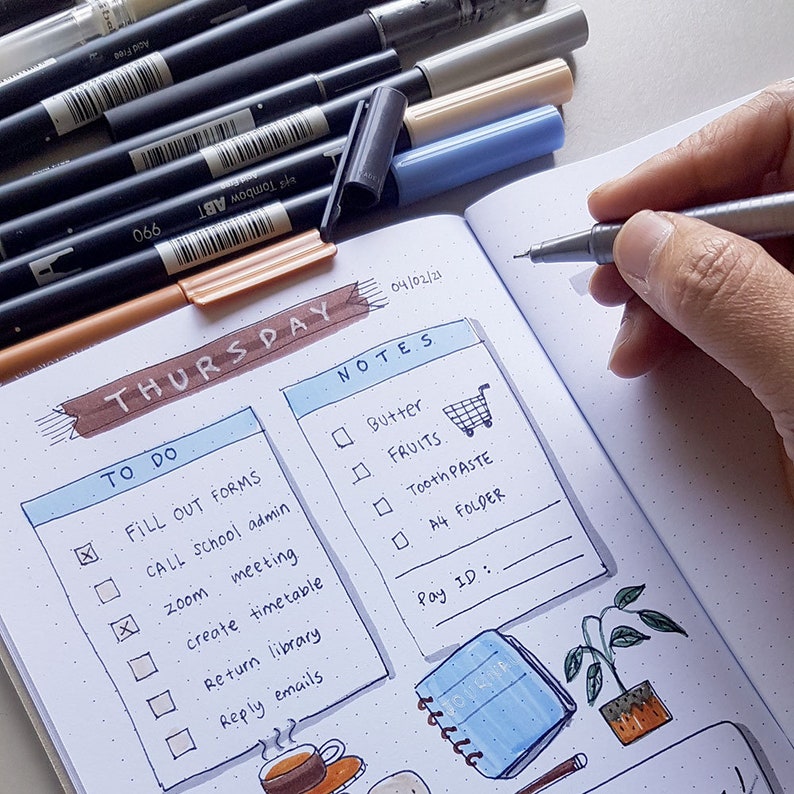 Acid Free
Acid Free
Tombow ABT
990
THURSDAY
04/02/21
TO DO
FILL OUT FORMS
CALL SCHOOL admin
ZOOM meeting
Create timetable
Return library
Reply emails
NOTES
Butter
FRUITS
ToothPASTE
A4 FOLDER
Pay ID:
JOURNAL